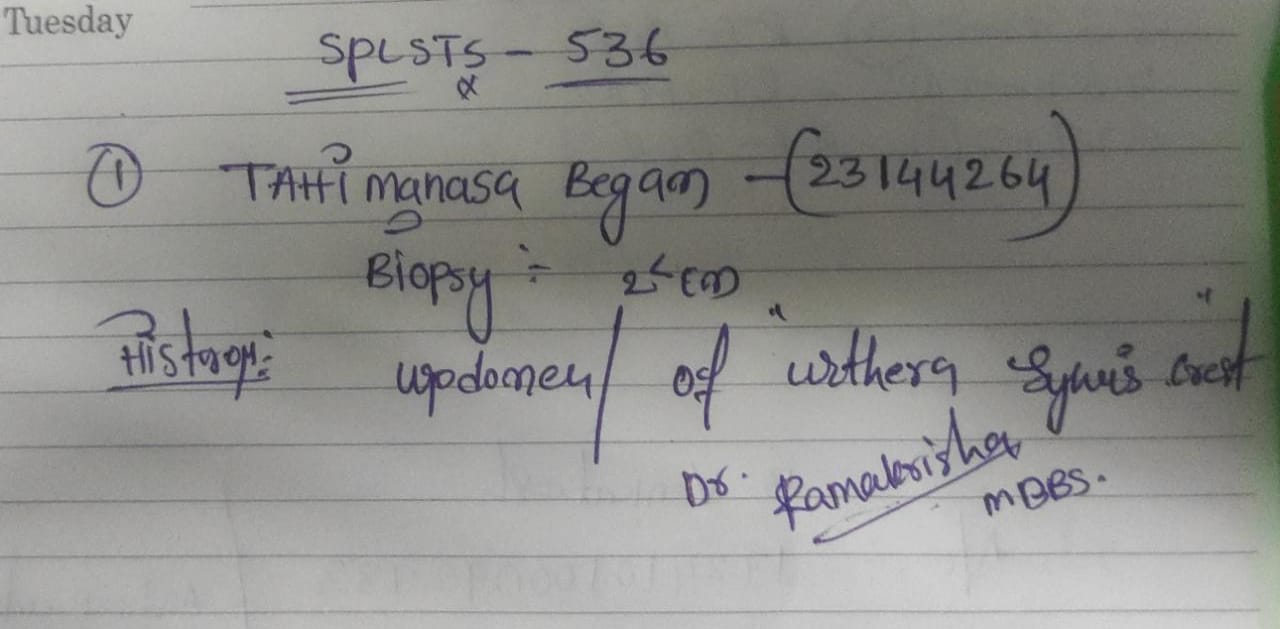 Tuesday
SPLSTS - 536
① TAHi manasa Begam - (23144264)
Biopsy :- 2
History:- of " urthera Synuis crest "
Dr. Ramakrisha
MBBS.